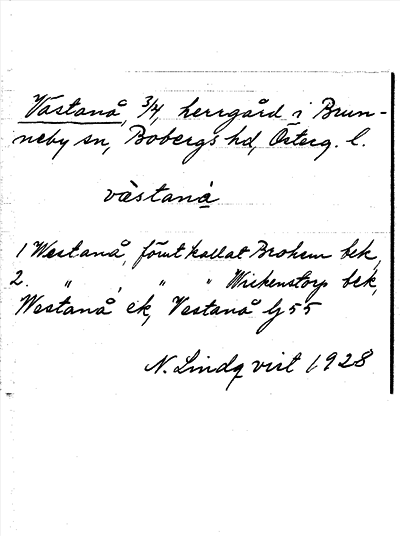 Västanå, 3/4, herrgård i Brun-
neby sn, Bobergs hd, Österg. l.
vä̀staná
1 Westanå, förut kallat Brohem bek,
2. " , " " Wirkenstorp bek,
Westanå ek, Vestanå Lj 55
N. Lindqvist 1928